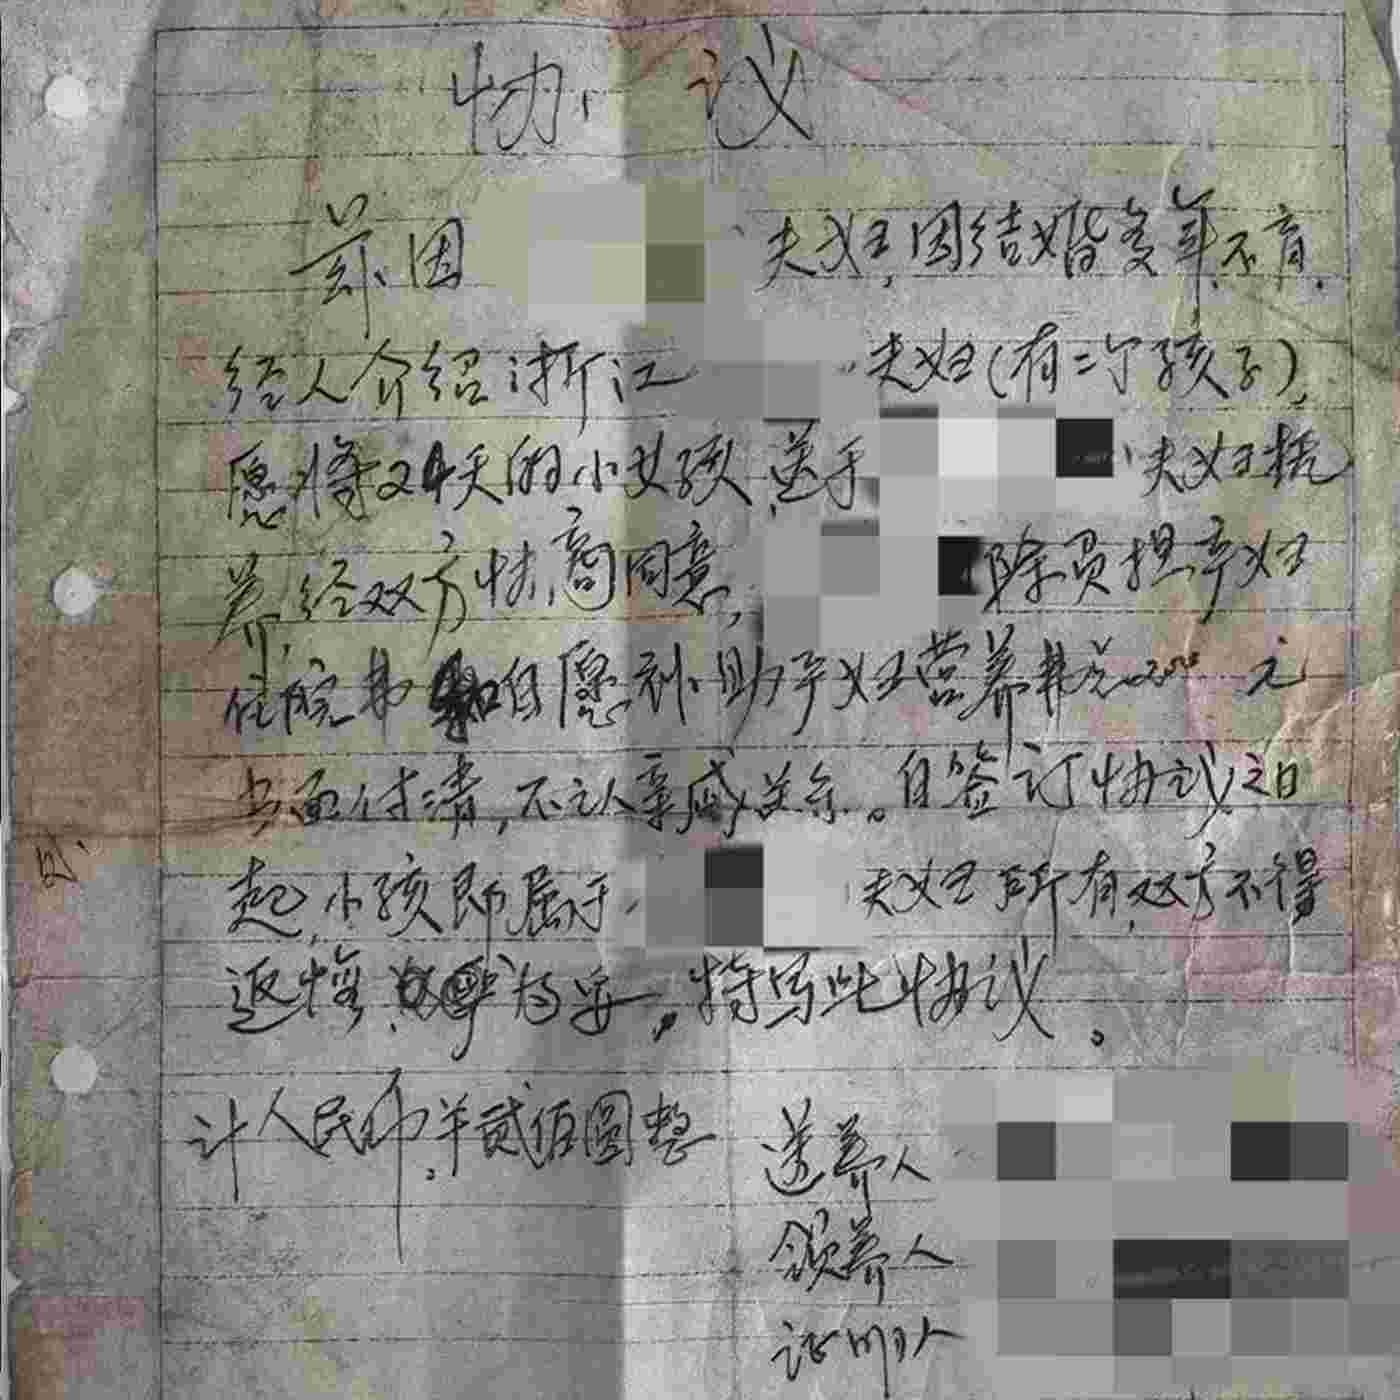 协议
兹因 夫妇,因结婚多年不育.
经人介绍浙江 夫妇(有二个孩子),
愿将24天的小女孩,送于 夫妇抚
养,经双方协商同意, 除负担产妇
住院费和自愿补助产妇营养费 元
当面付清,不认亲戚关系。自签订协议之日
起,小孩即属于 夫妇所有,双方不得
返悔, 为妥,特写此协议。
计人民币 贰佰圆整
送养人
领养人
证明人